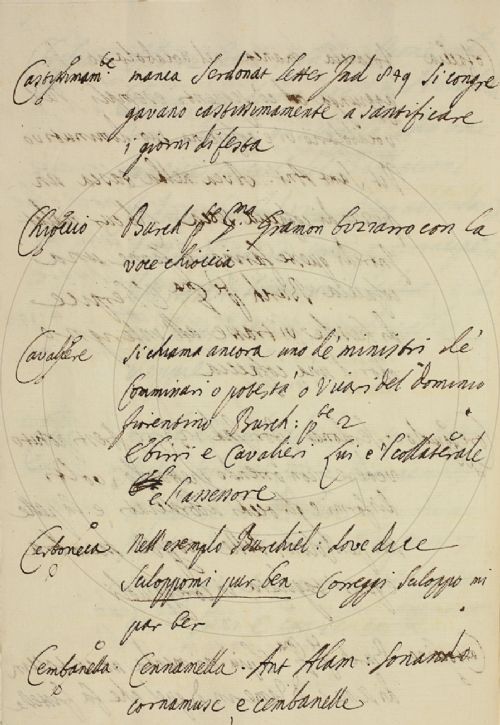 Castissimam:te manca Serdonat letter Ind 849 si congre
gavano castissimamente a santificare
i giorni di festa
Chioccio Burch p
con la
voce chioccia
Cavaliere si chiama ancora uno de ministri de
Commissari o potesta o Vicari del dominio
fiorentino Burch: p:te 2
E birri e Cavalieri Lui e 'l collaterale
e l'assessore
Cerboneca Nell'esemplo Burchiel: dove dice
Sciloppomi pur ben Correggi
mi
pur ber
Cembanella Cennamella. Ant Alam. sonando
cornamuse, e cembanelle